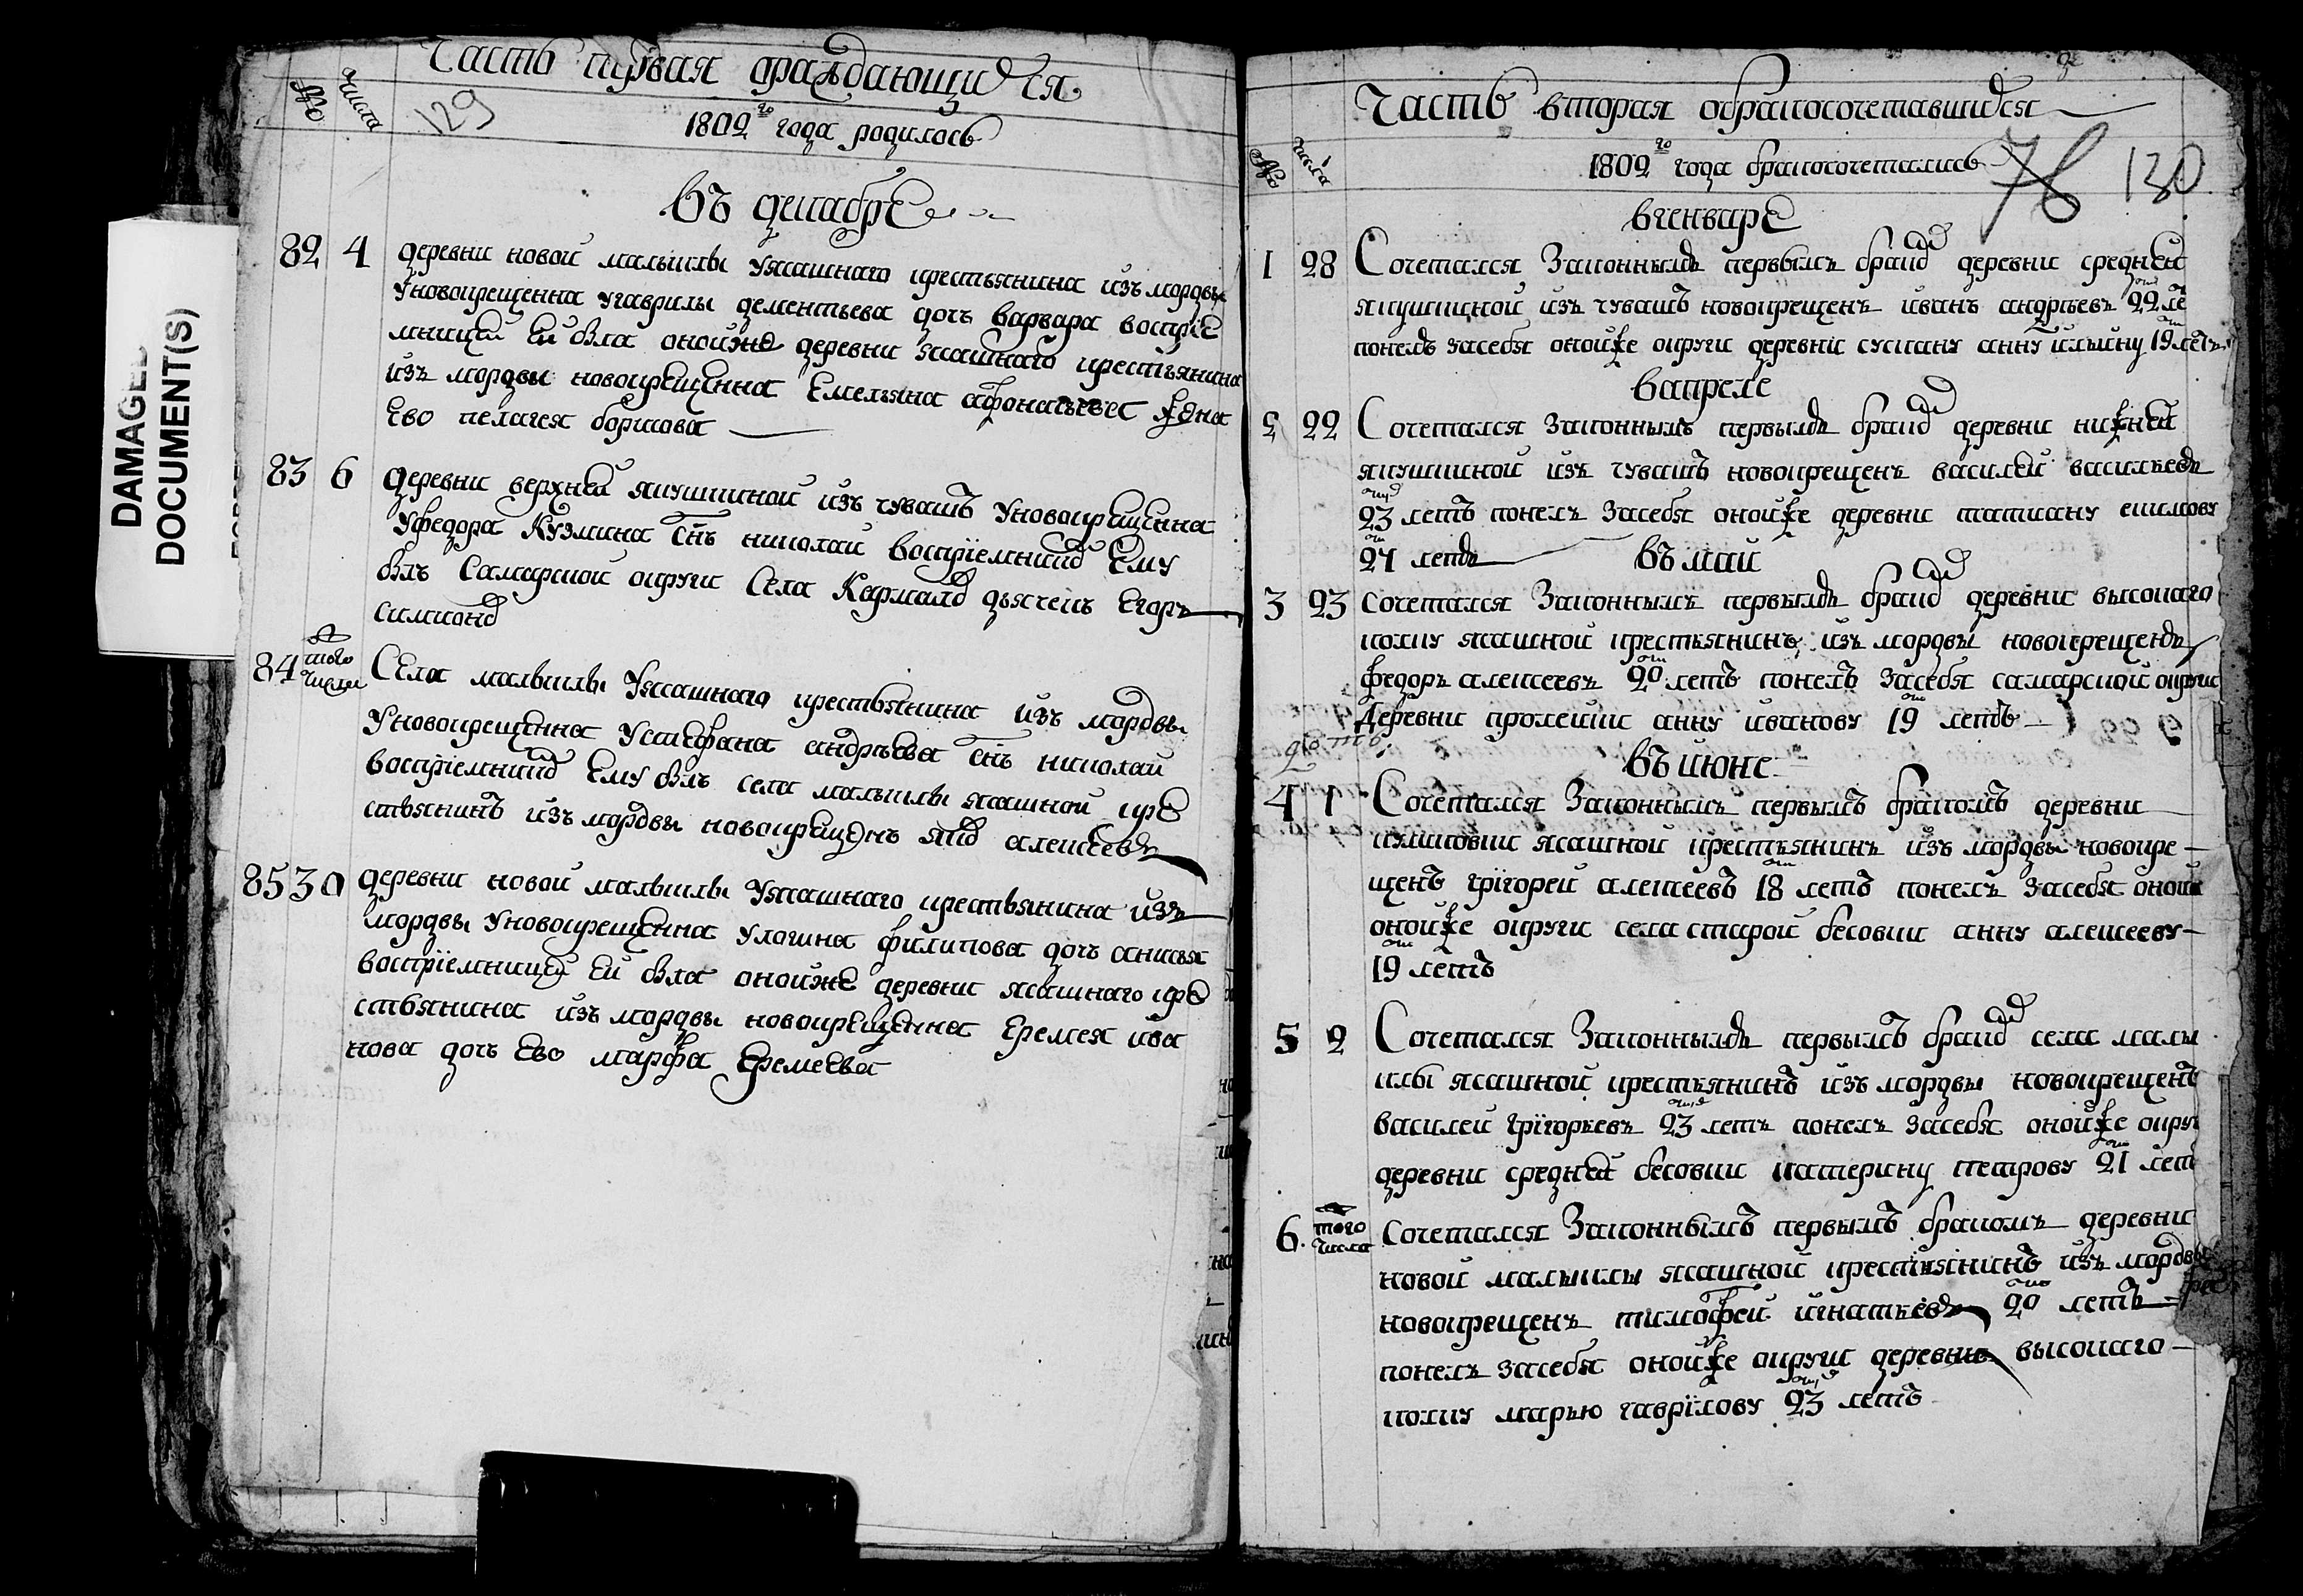 DAMAGED
DOCUMENT(S)
Часть первая ораждающихся
№ числа
129
1802го года родилось
въ декабре
82 4 деревни новой малыклы уясашнаго крестьянина изъ мордвы
уновокрещенна угаврилы дементьева дочь варвара воспрiе
мницей ей была онойже деревни ясашнаго крестьянина
изъ мордвы новокрещенна Емельяна афонасьева жена
Ево пелагея борисова
83 6 деревни верхней якушкиной изъ чувашъ уновокрещенна
уфедора Кузмина снъ николай воспрiемникъ Ему
былъ Самарской округи Села Кармалъ дьячекъ Егоръ
84 того числа Села малыклы уясашнаго крестьянина изъ мордвы
уновокрещенна устефана андрѣева снъ николай
воспрiемникъ Ему былъ села малыклы ясашной кре
стьянинъ изъ мордвы новокрещенъ алексеевъ
85 30 деревни новой малыклы уясашнаго крестьянина изъ
мордвы уновокрещенна улогина филипова дочь анисья
воспрiемницей Ей была онойже деревни ясашнаго кре
стьянина изъ мордвы новокрещенна Еремея ива
нова дочь Ево марфа Еремеева
Часть вторая обракосочетавшихся
№ числа
1802го года бракосочетались 76 130
вгенваре
1 28 Сочетался Законнымъ первымъ бракомъ деревни средней
якушкиной изъ чувашъ новокрещенъ иванъ андрѣевъ 22 ле
понелъ засебя онойже округи деревни сускану анну ильину 19 летъ
вапреле
2 22 Сочетался законнымъ первымъ бракомъ деревни нижней
якушкиной изъ чувашъ новокрещенъ василей васильевъ
23 летъ понелъ Засебя онойже деревни татиану екимову
21 летъ въ маи
3 23 сочетался Законнымъ первымъ бракомъ деревни высокаго
колку ясашной крестьянинъ изъ мордвы новокрещенъ
федоръ алексеевъ 20 летъ понелъ Засебя самарской округи
деревни пролейки анну иванову 19 летъ
въ июне
4 1 Сочетался Законнымъ первымъ бракомъ деревни
куликовки ясашной крестьянинъ изъ мордвы новокре
щенъ Григорей алексеевъ 18 летъ понелъ засебя оной
онойже округи села старой бесовки анну алексееву
19 летъ
5 2 Сочетался Законнымъ первымъ бракомъ села малы
клы ясашной крестьянинъ изъ мордвы новокрещенъ
василей Григорьевъ 23 летъ понелъ засебя онойже округ
деревни средней бесовки катерину петрову 21 лет
6. того числа Сочетался Законнымъ первымъ бракомъ деревни
новой малыклы ясашной крестьянинъ изъ мордвы
новокрещенъ тимофей игнатьевъ 20 летъ
понелъ засебя онойже округи деревни высокаго
колку марью гаврилову 23 летъ